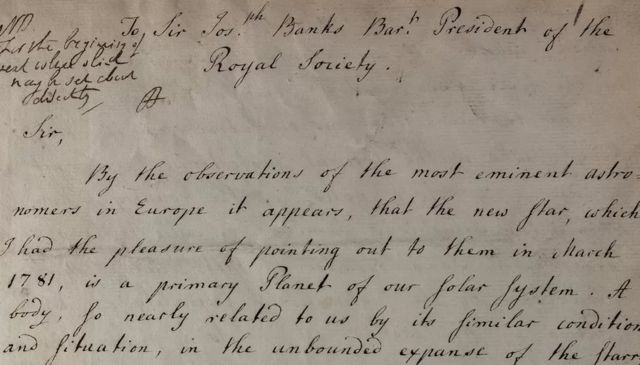 NB
Let the beginning of
next
may be set
directly
To Sir Jos.ph Banks Bar.t President of the
Royal Society.
Sir,
By the observations of the most eminent astro-
nomers in Europe it appears, that the new star, which
I had the pleasure of pointing out to them in March
1781, is a primary Planet of our Solar System. A
body, so nearly related to us by its similar condition
and situation, in the unbounded expanse of the starr